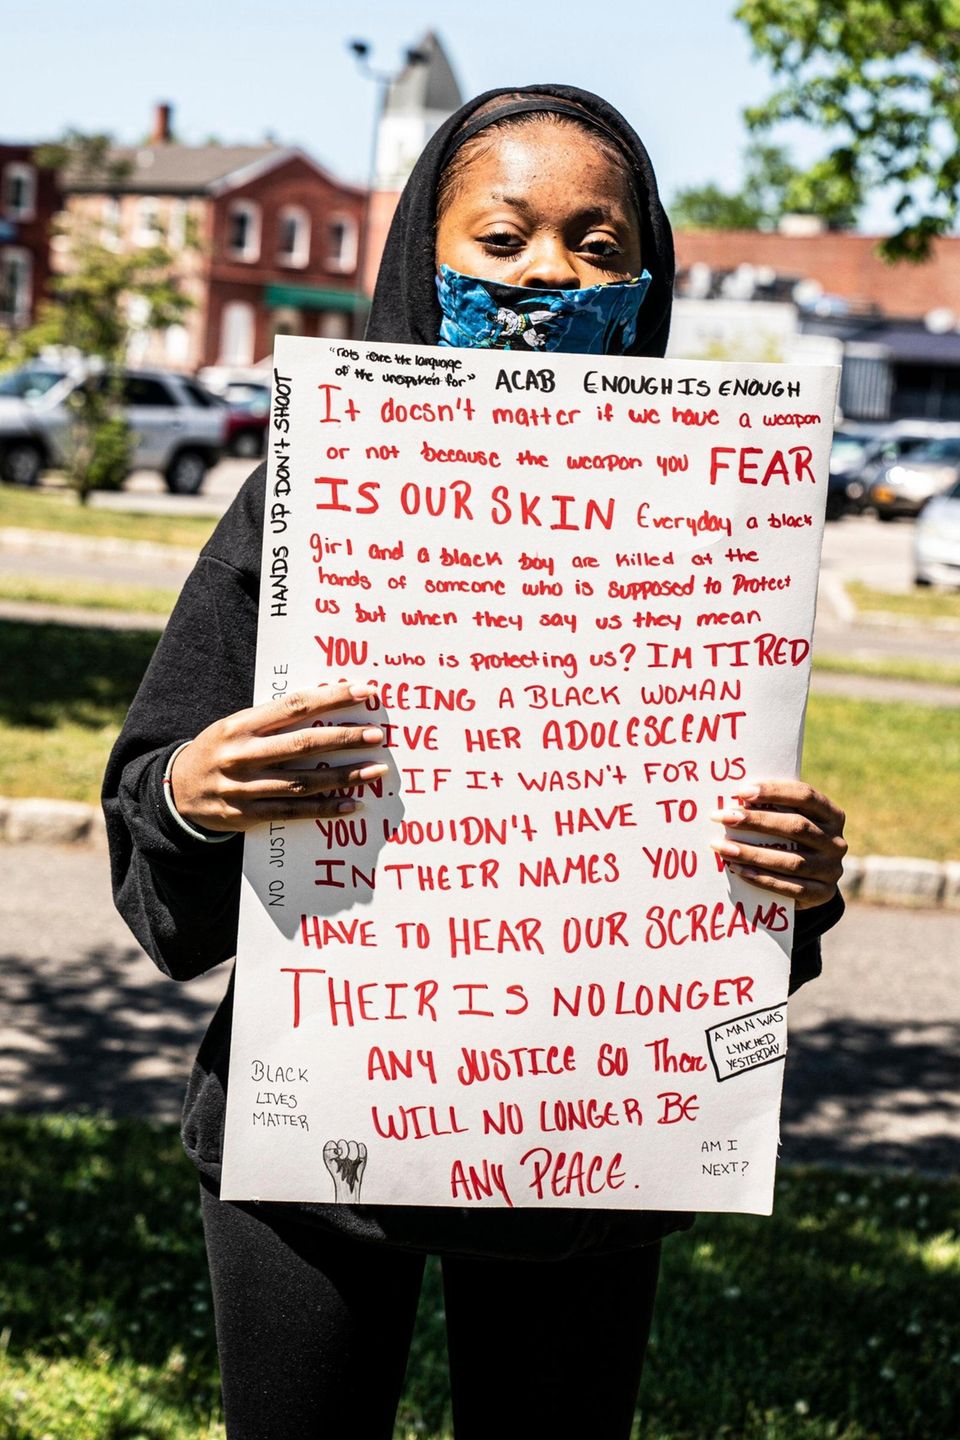 "riots are the language
of the unspoken for"
ACAB ENOUGH IS ENOUGH
HANDS UP DON'T SHOOT
It doesn't matter if we have a weapon
or not because the weapon you FEAR
IS OUR SKIN Everyday a black
girl and a black boy are killed at the
hands of someone who is supposed to Protect
us but when they say us they mean
YOU. who is protecting us? IM TIRED
SEEING A BLACK WOMAN
IVE HER ADOLESCENT
. IF It WASN't FOR US
YOU WOUlDN't HAVE TO
IN THEIR NAMES YOU
HAVE TO HEAR OUR SCREAMS
THEIR IS NO LONGER
ANY JUSTICE SO Ther
WILL NO LONGER BE
ANY PEACE.
NO JUST ACE
A MAN WAS
LYNCHED
YESTERDAY
BLACK
LIVES
MATTER
AM I
NEXT?